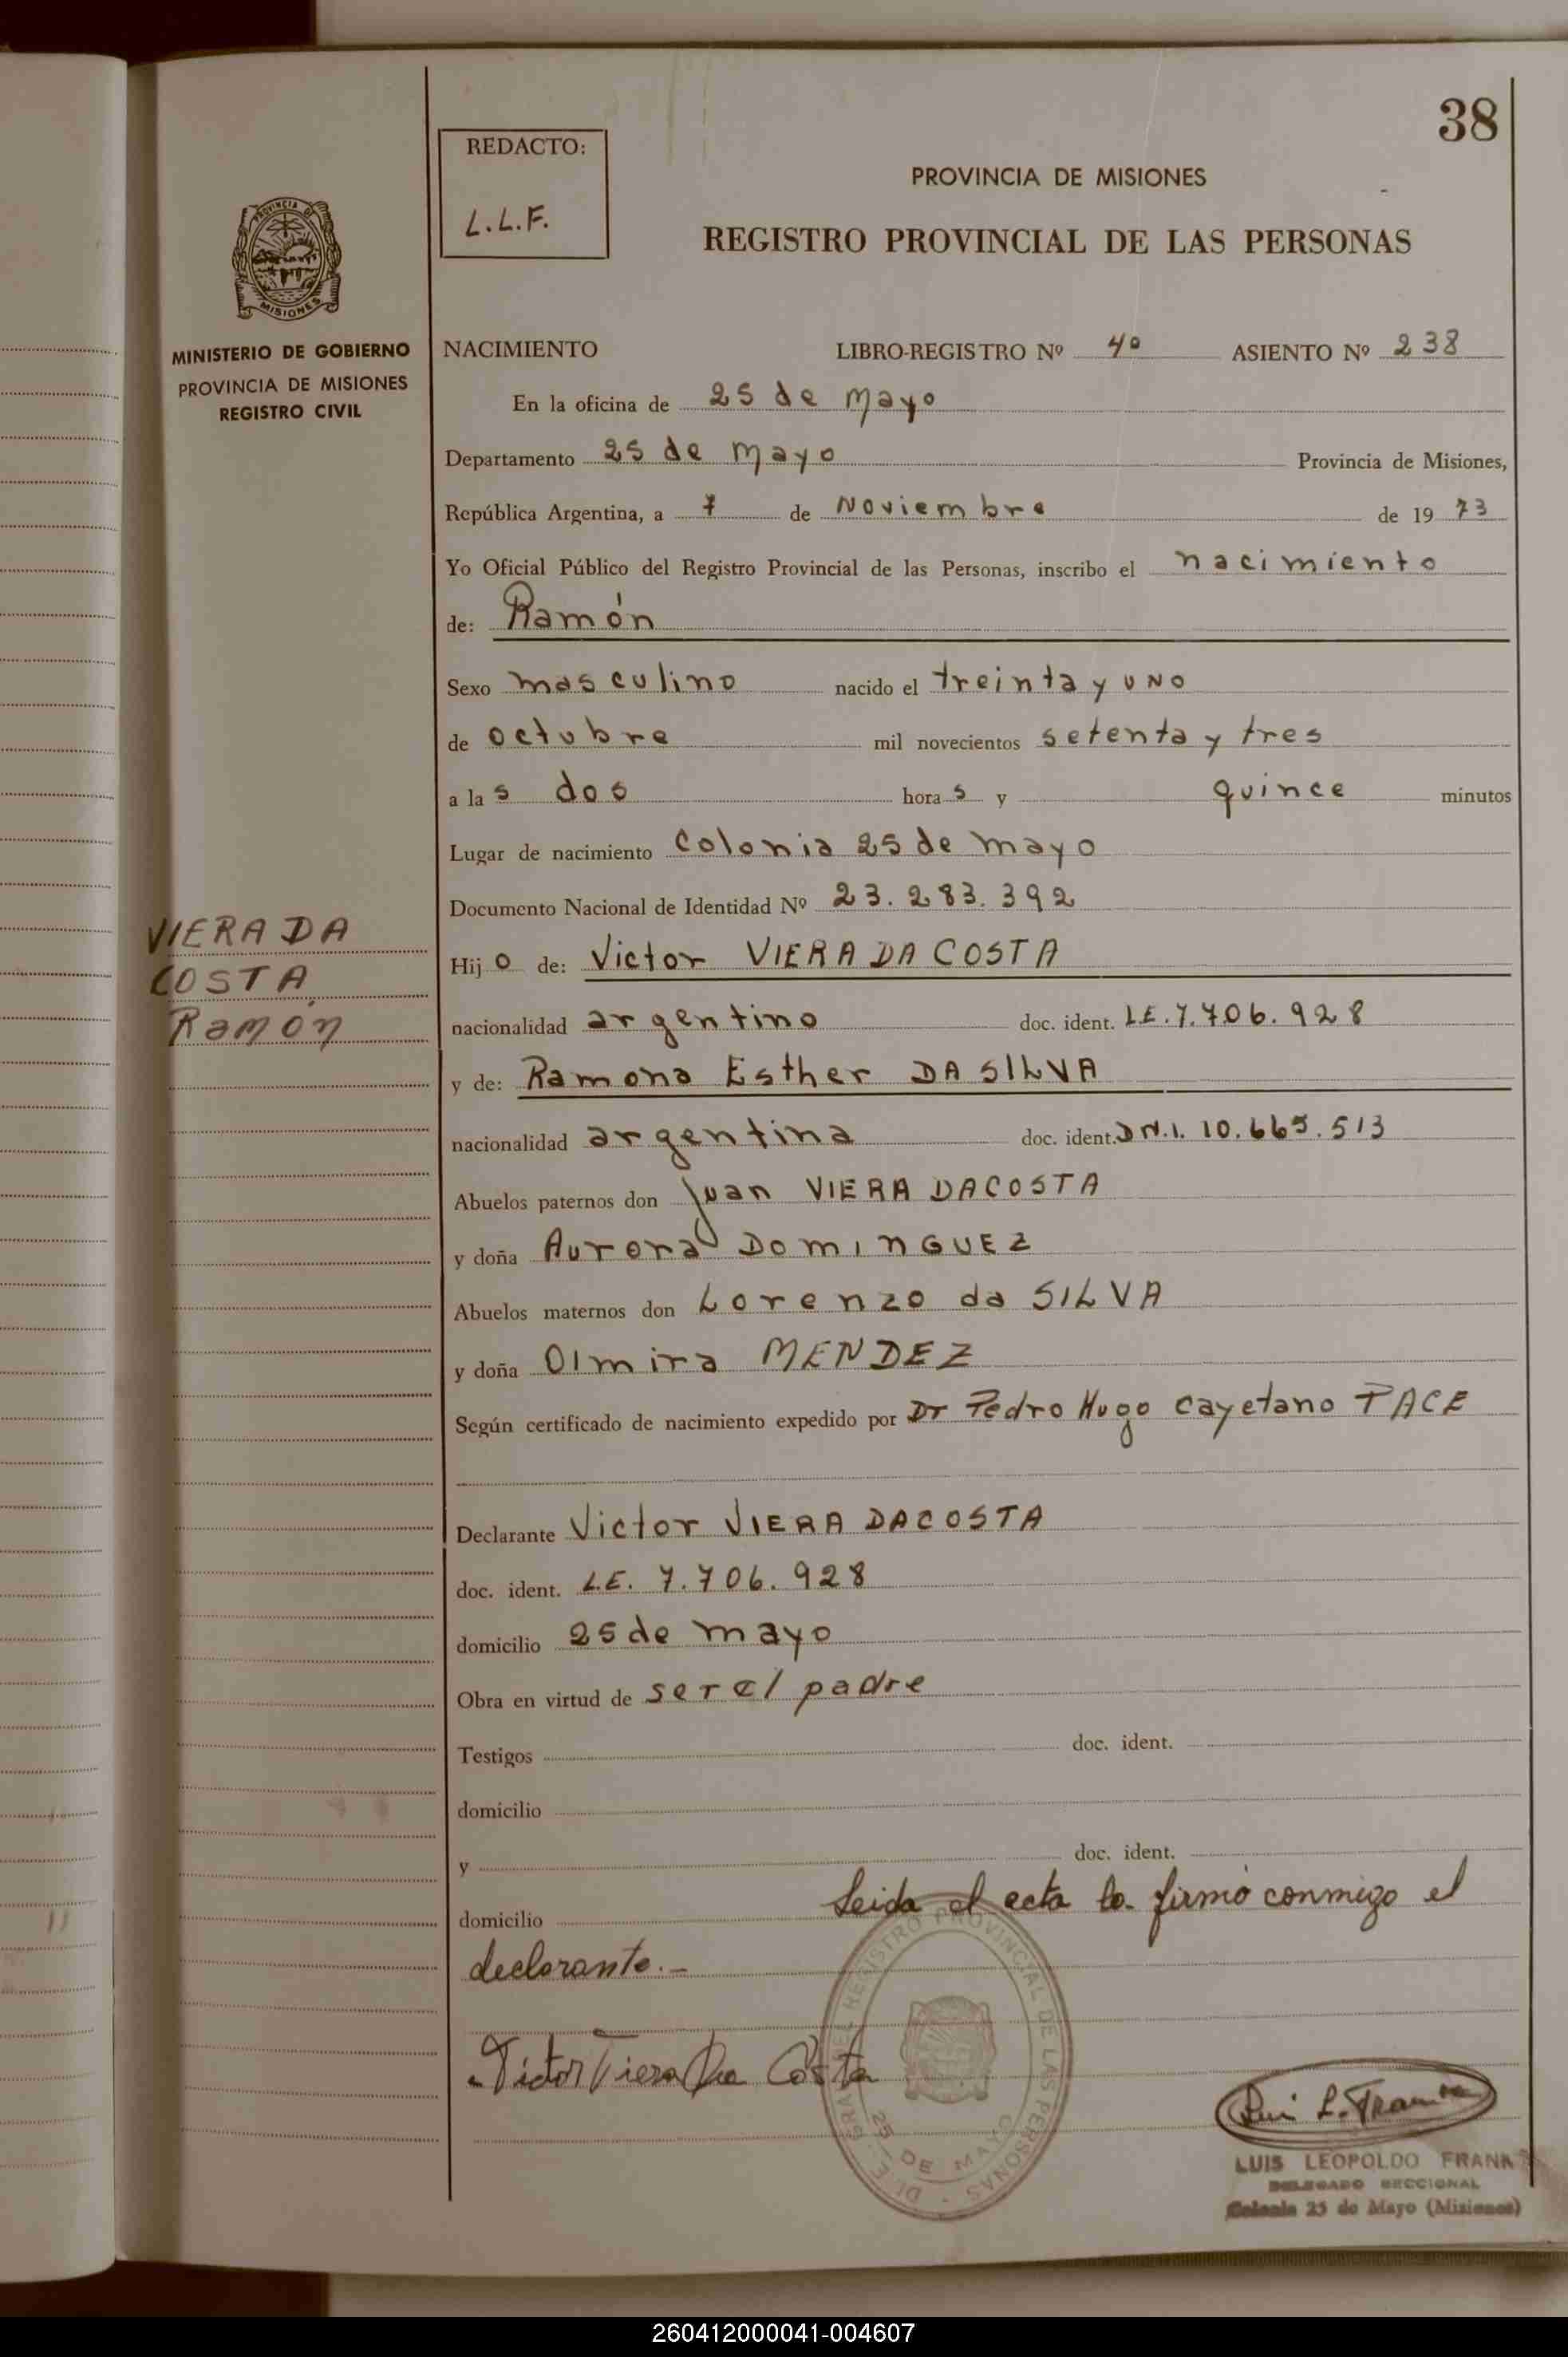 38
REDACTO:
L.L.F.
PROVINCIA DE MISIONES
REGISTRO PROVINCIAL DE LAS PERSONAS
PROVINCIA DE
MISIONES
MINISTERIO DE GOBIERNO
PROVINCIA DE MISIONES
REGISTRO CIVIL
NACIMIENTO LIBRO-REGISTRO Nº 4º ASIENTO Nº 238
En la oficina de 25 de Mayo
Departamento 25 de Mayo Provincia de Misiones,
República Argentina, a 7 de Noviembre de 1973
Yo Oficial Público del Registro Provincial de las Personas, inscribo el nacimiento
de: Ramón
Sexo masculino nacido el treinta y uno
de octubre mil novecientos setenta y tres
a las dos horas y quince minutos
Lugar de nacimiento Colonia 25 de Mayo
Documento Nacional de Identidad Nº 23.283.392
VIERA DA
COSTA
Ramón
Hijo de: Victor VIERA DA COSTA
nacionalidad argentino doc. ident. LE.7.706.928
y de: Ramona Esther DA SILVA
nacionalidad argentina doc. ident. DN.I. 10.665.513
Abuelos paternos don Juan VIERA DACOSTA
y doña Aurora DOMINGUEZ
Abuelos maternos don Lorenzo da SILVA
y doña Olmira MENDEZ
Según certificado de nacimiento expedido por Dr Pedro Hugo Cayetano PACE
Declarante Victor VIERA DACOSTA
doc. ident. L.E. 7.706.928
domicilio 25 de mayo
Obra en virtud de ser el padre
Testigos doc. ident.
domicilio
y doc. ident.
domicilio Leida el acta la firmó conmigo el
declarante.-
Victor Viera Da Costa
REGISTRO PROVINCIAL DE LAS PERSONAS
25 DE MAYO
LUIS LEOPOLDO FRANK
DELEGADO SECCIONAL
Colonia 25 de Mayo (Misiones)
260412000041-004607